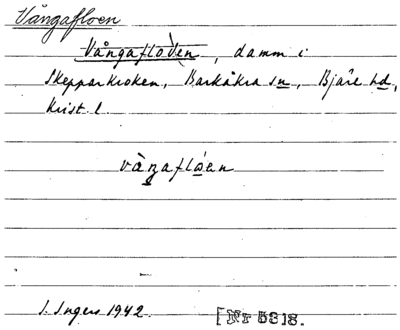 Vångafloen
Vångafloden, damm i
Skepparkroken, Barkåkra sn, Bjäre hd,
Krist. l.
vàŋaflo̱en
I. Ingers 1942.
[Nr 5318.